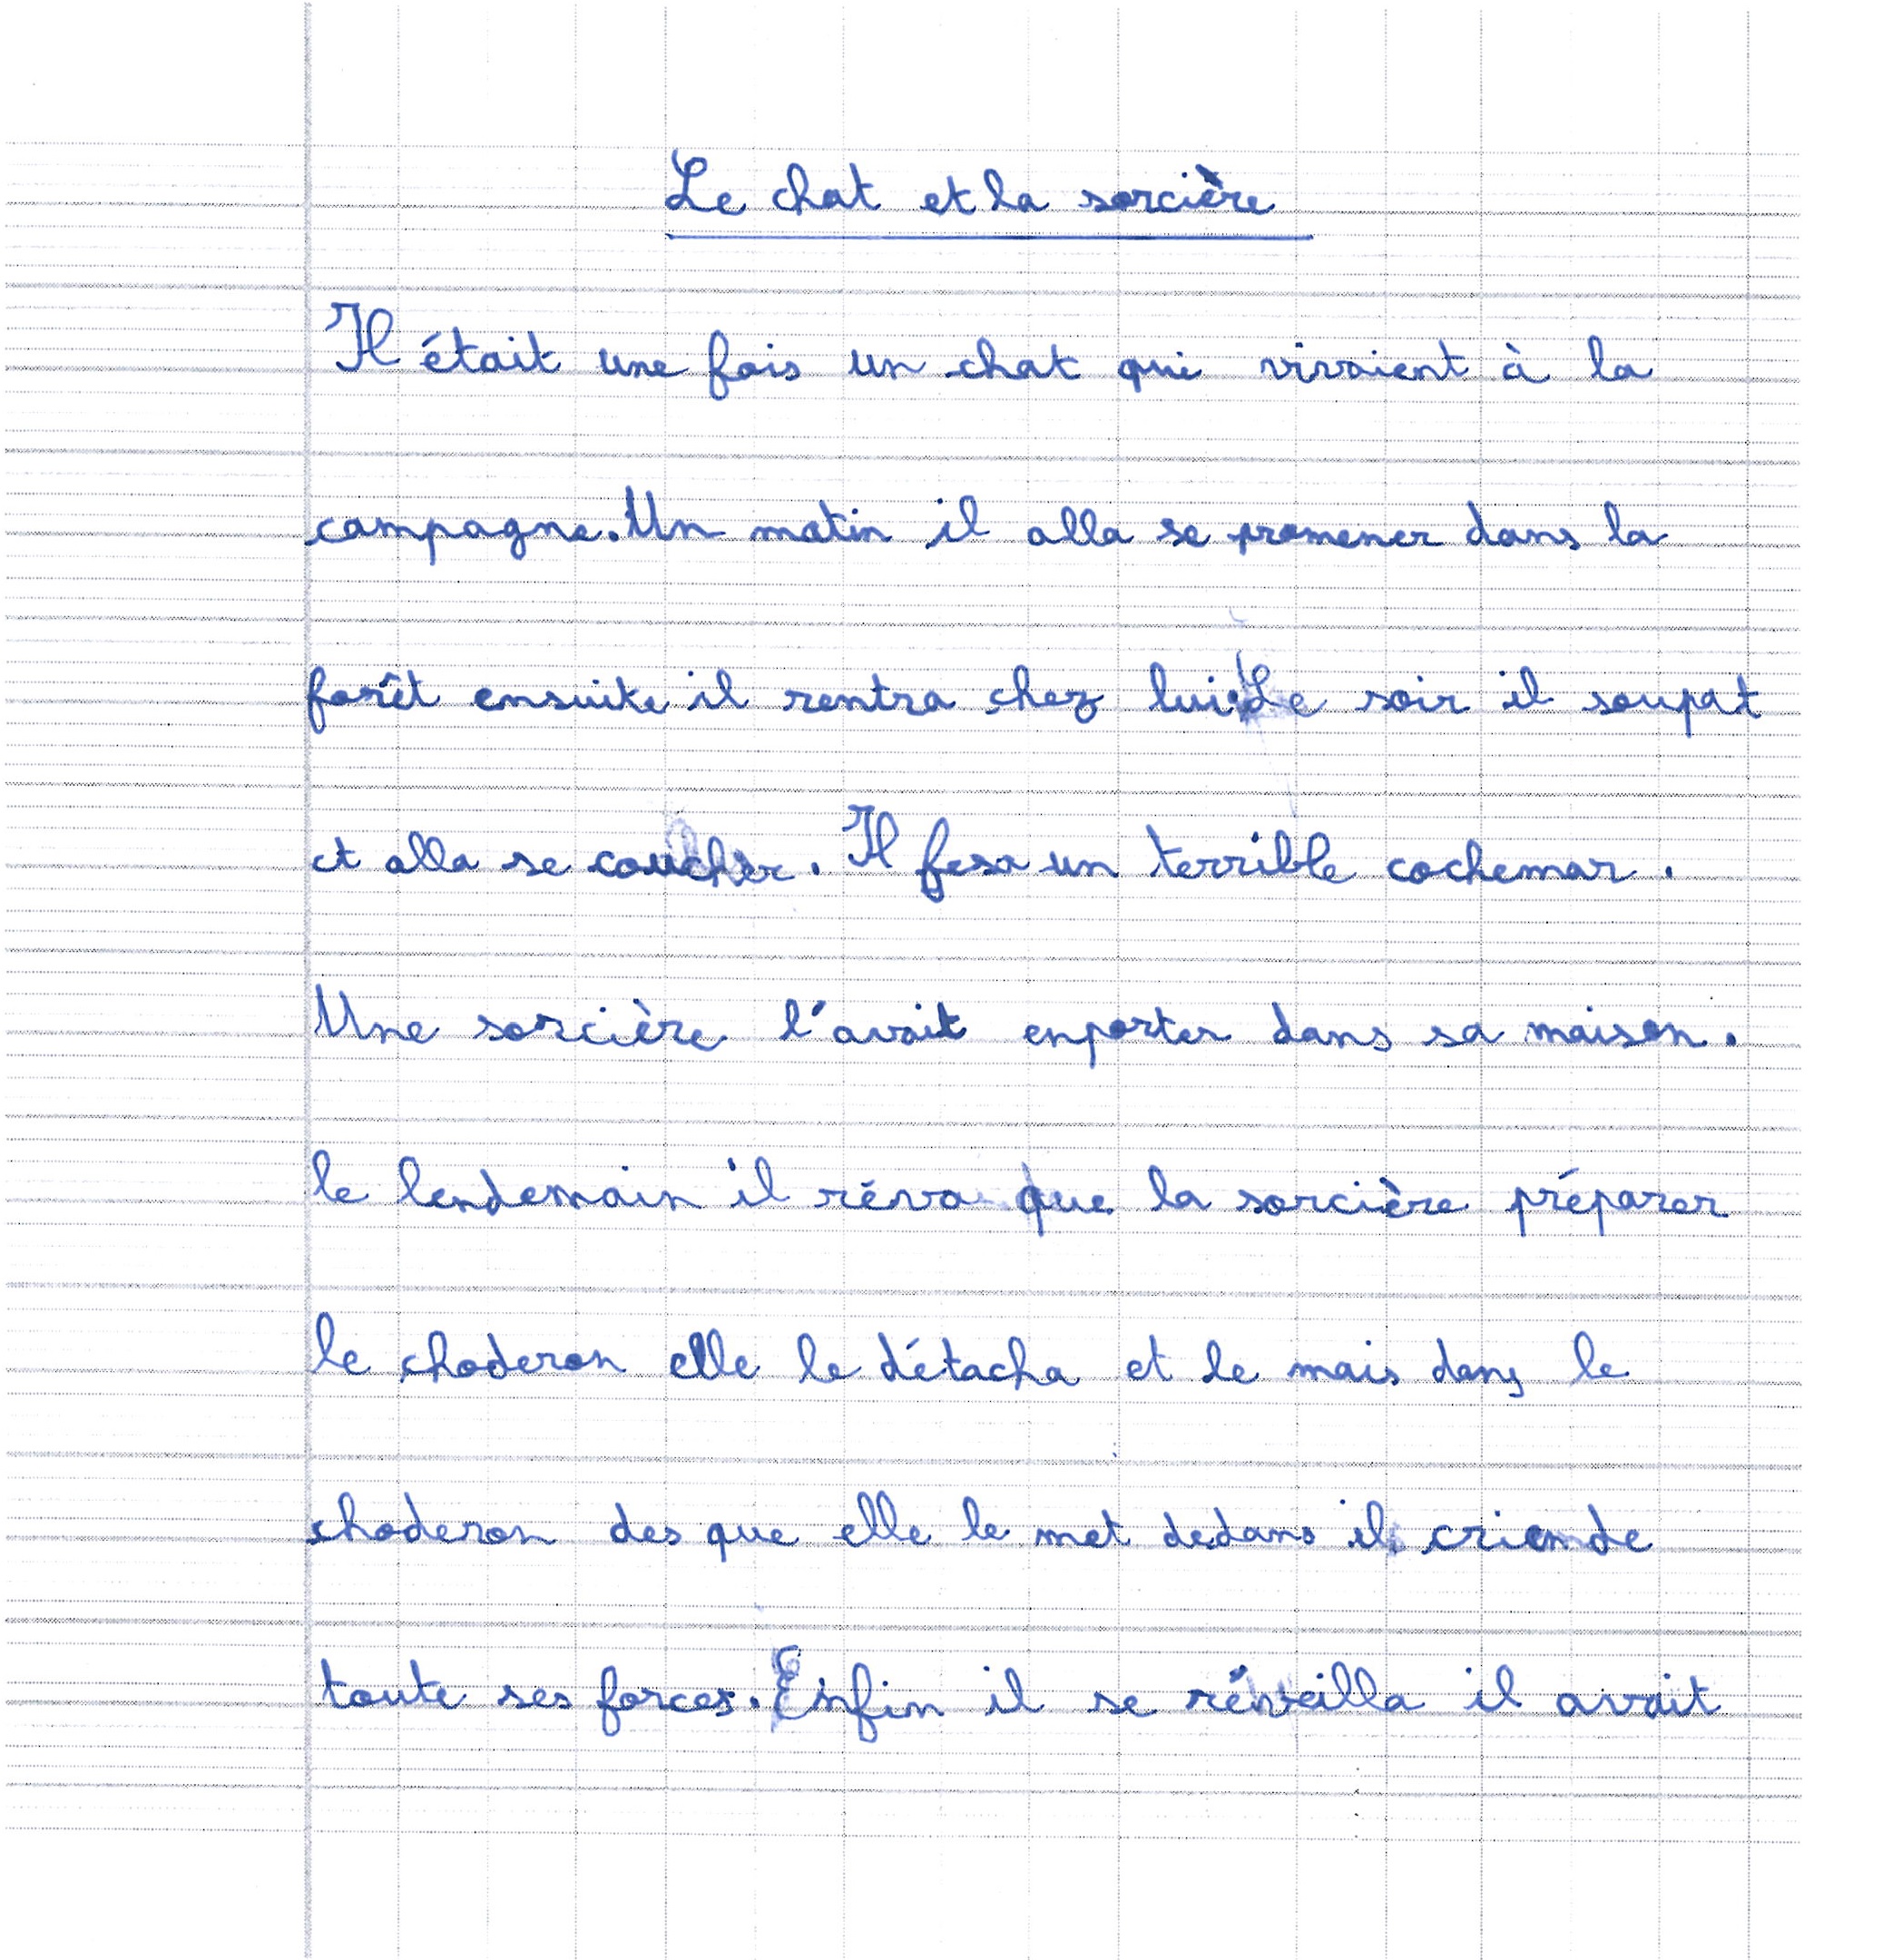 Le chat et la sorcière
Il était une fois un chat qui vivaient à la
campagne. Un matin il alla se promener dans la
forêt ensuite il rentra chez lui. Le soir il soupat
et alla se coucher. Il fesa un terrible cochemar.
Une sorcière l'avait enporter dans sa maison.
le lendemain il réva que la sorcière préparer
le choderon elle le détacha et le mais dans le
choderon des que elle le met dedans il criande
toute ses forces. Enfin il se réveilla il avait